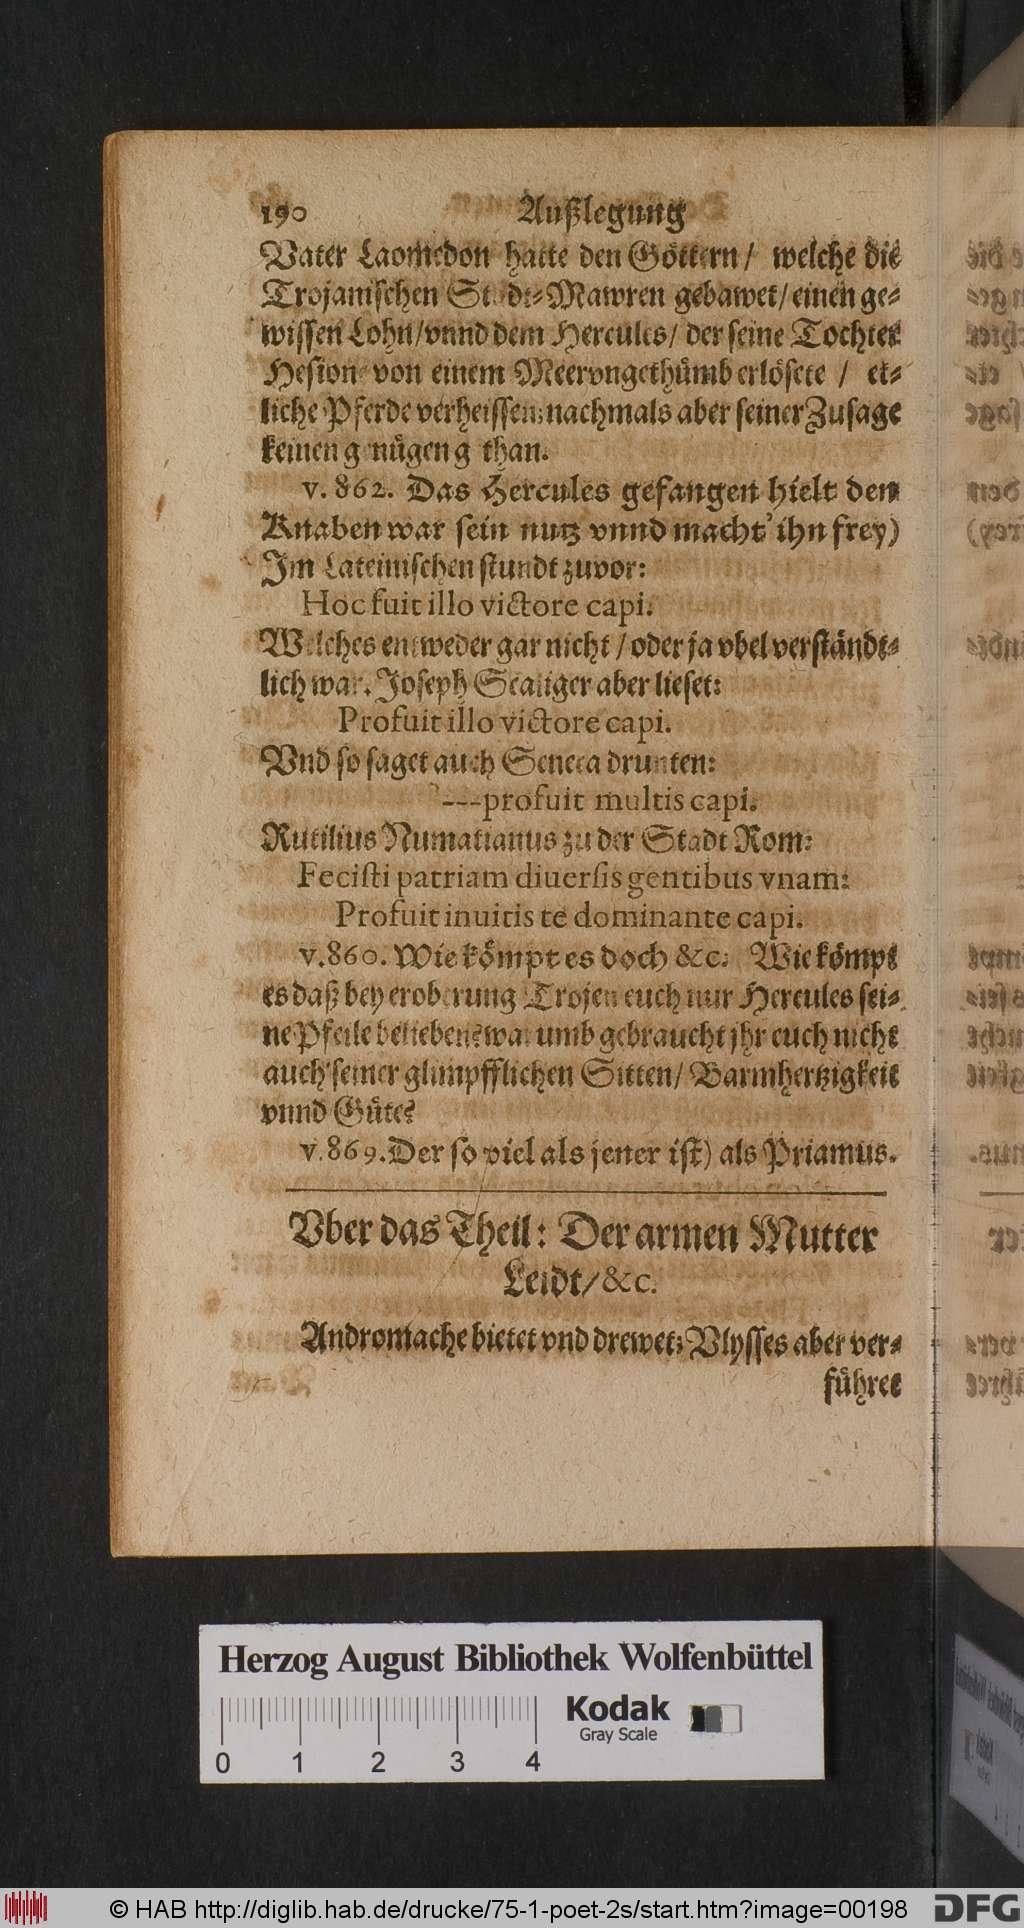 190 Außlegung
Vater Laomedon hatte den Göttern / welche die
Trojanischen Stadt-Mawren gebawet / einen ge-
wissen Lohn / vnnd dem Hercules / der seine Tochter
Hesione von einem Meervngethümb erlösete / et-
liche Pferde verheissen; nachmals aber seiner Zusage
keinen genügen gethan.
v. 862. Das Hercules gefangen hielt den
Knaben war sein nutz vnnd macht' ihn frey)
Im Lateinischen stundt zuvor:
Hoc fuit illo victore capi.
Welches entweder gar nicht / oder ja vbel verständt-
lich war. Joseph Scaliger aber lieset:
Profuit illo victore capi.
Vnd so saget auch Seneca drunten:
---profuit multis capi.
Rutilius Numatianus zu der Stadt Rom:
Fecisti patriam diuersis gentibus vnam:
Profuit inuitis te dominante capi.
v. 860. Wie kömpt es doch &c. Wie kömpt
es daß bey eroberung Trojen euch nur Hercules sei-
ne Pfeile belieben? warumb gebraucht jhr euch nicht
auch seiner glimpfflichen Sitten / Barmhertzigkeit
vnnd Güte?
v. 869. Der so viel als jener ist) als Priamus.
Vber das Theil: Der armen Mutter
Leidt / &c.
Andromache bietet vnd drewet; Vlysses aber ver-
führet
Herzog August Bibliothek Wolfenbüttel
Kodak
Gray Scale
0 1 2 3 4
© HAB http://diglib.hab.de/drucke/75-1-poet-2s/start.htm?image=00198
DFG